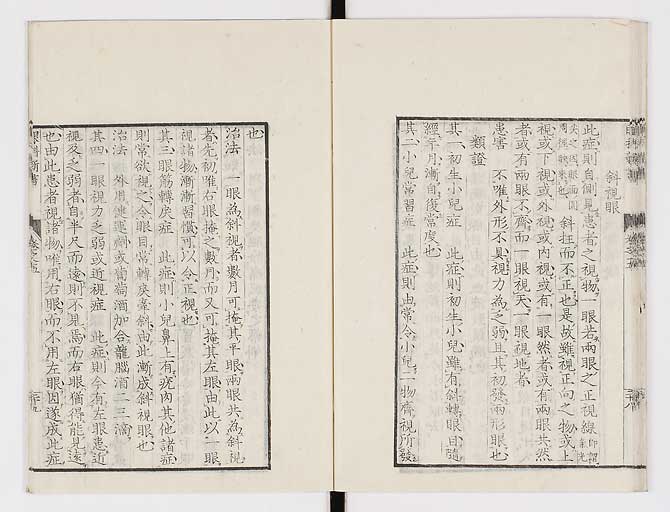 斜視眼
此症則自側見患者之視物一眼若兩眼之正視線
斜拄而不正也是故雖視正向之物或上
視或下視或外視或内視或有一眼然者或有兩眼共然
者或有兩眼不齊而一眼視天一眼視地者
患害 不唯外形不具視力為之弱且其初發兩形眼也
類證
其一初生小兒症 此症則初生小兒雖有斜轉眼目隨
經年月漸自復常度也
其二小兒常習症 此症則由常令小兒一物齊視所發
也
治法 一眼為斜視者數月可掩其平眼兩眼共為斜視
者先初唯右眼掩之數月而又可掩其左眼由此以一眼
視諸物漸漸習慣可以令正視也
其三眼筋轉戾症 此症則小兒鼻上有疣内其他諸症
則常欲視之令眼目常轉戾牽斜由此漸成斜視眼也
治法 外用健運劑或葡萄酒加合龍腦酒二三滴
其四一眼視力之弱或近視症 此症則今有左眼患近
視及之弱者自半尺而遠則不見焉而右眼猶得能見遠
也由此患者視諸物唯用右眼而不用左眼因遂成此症
眼科新書
卷之五